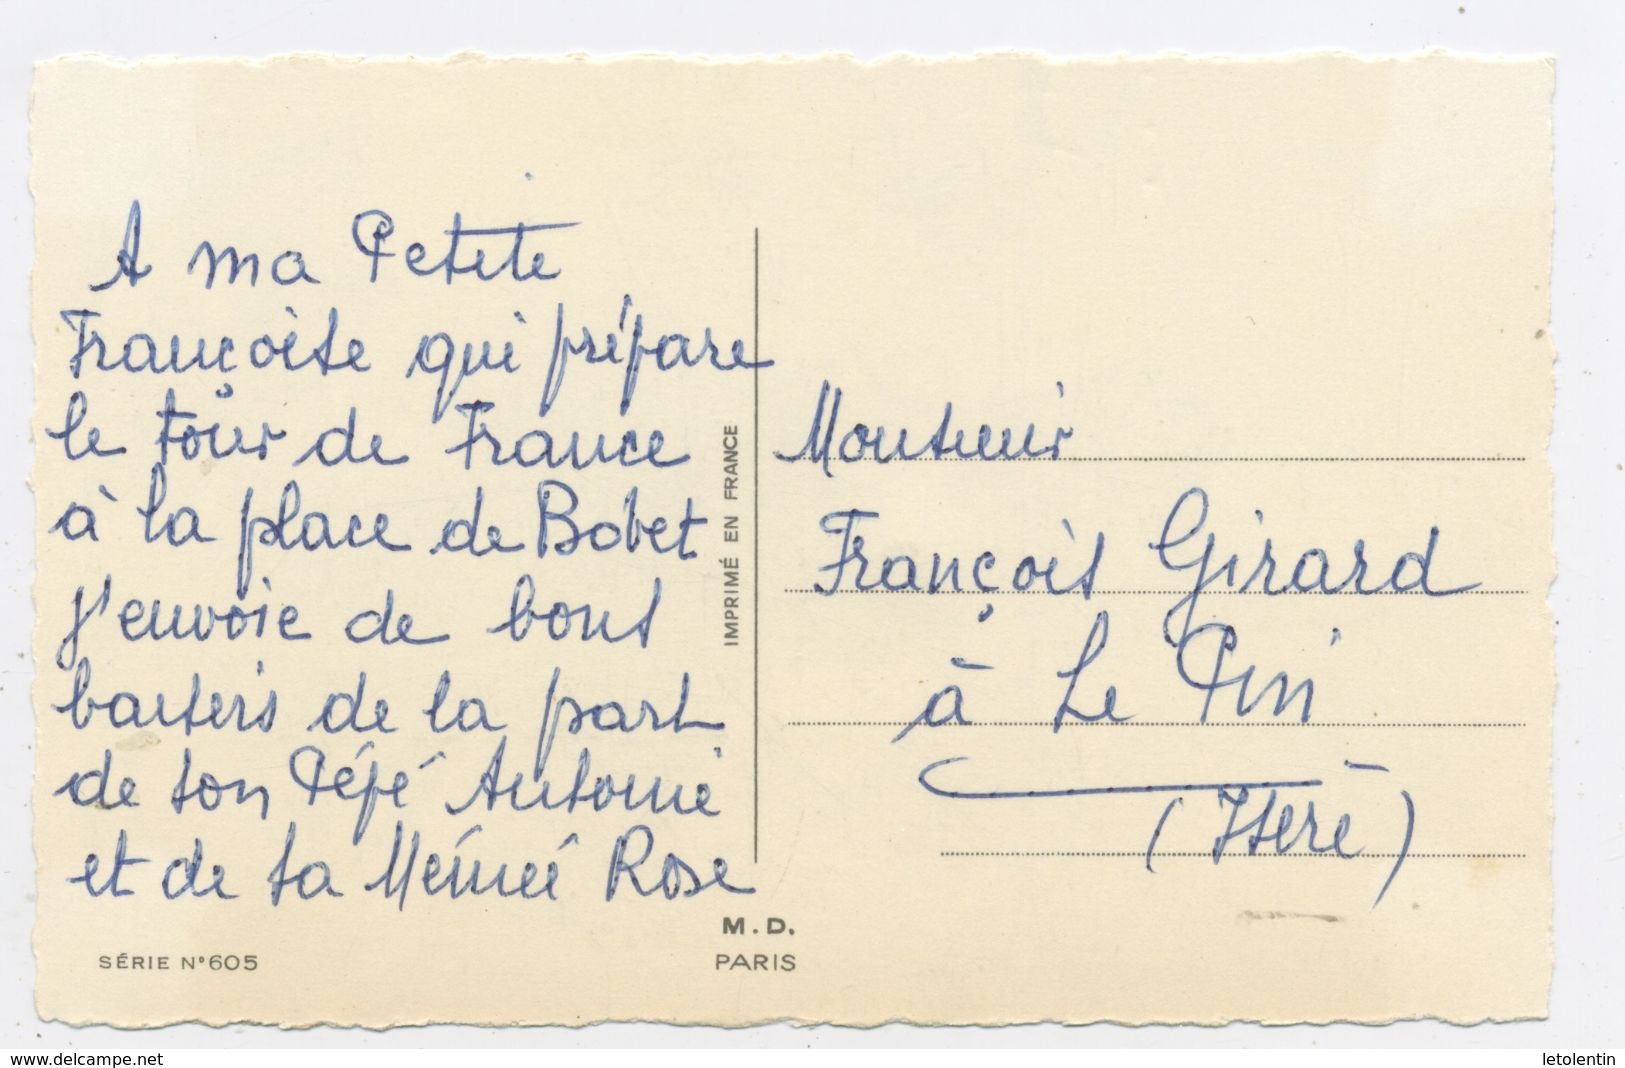 A ma Petite
Françoise qui prépare
le tour de France
à la place de Bobet
j'envoie de bons
baisers de la part
de ton Pépé Antoine
et de ta Mémée Rose
SÉRIE N°605
IMPRIMÉ EN FRANCE
M.D.
PARIS
Monsieur
François Girard
à Le Pin
(Isère)
www.delcampe.net
letolentin